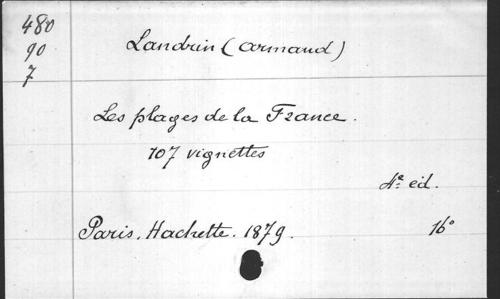 480
90
7
Landrin (Armand)
Les plages de la France.
107 vignettes
4e éd.
Paris. Hachette. 1879.
16°